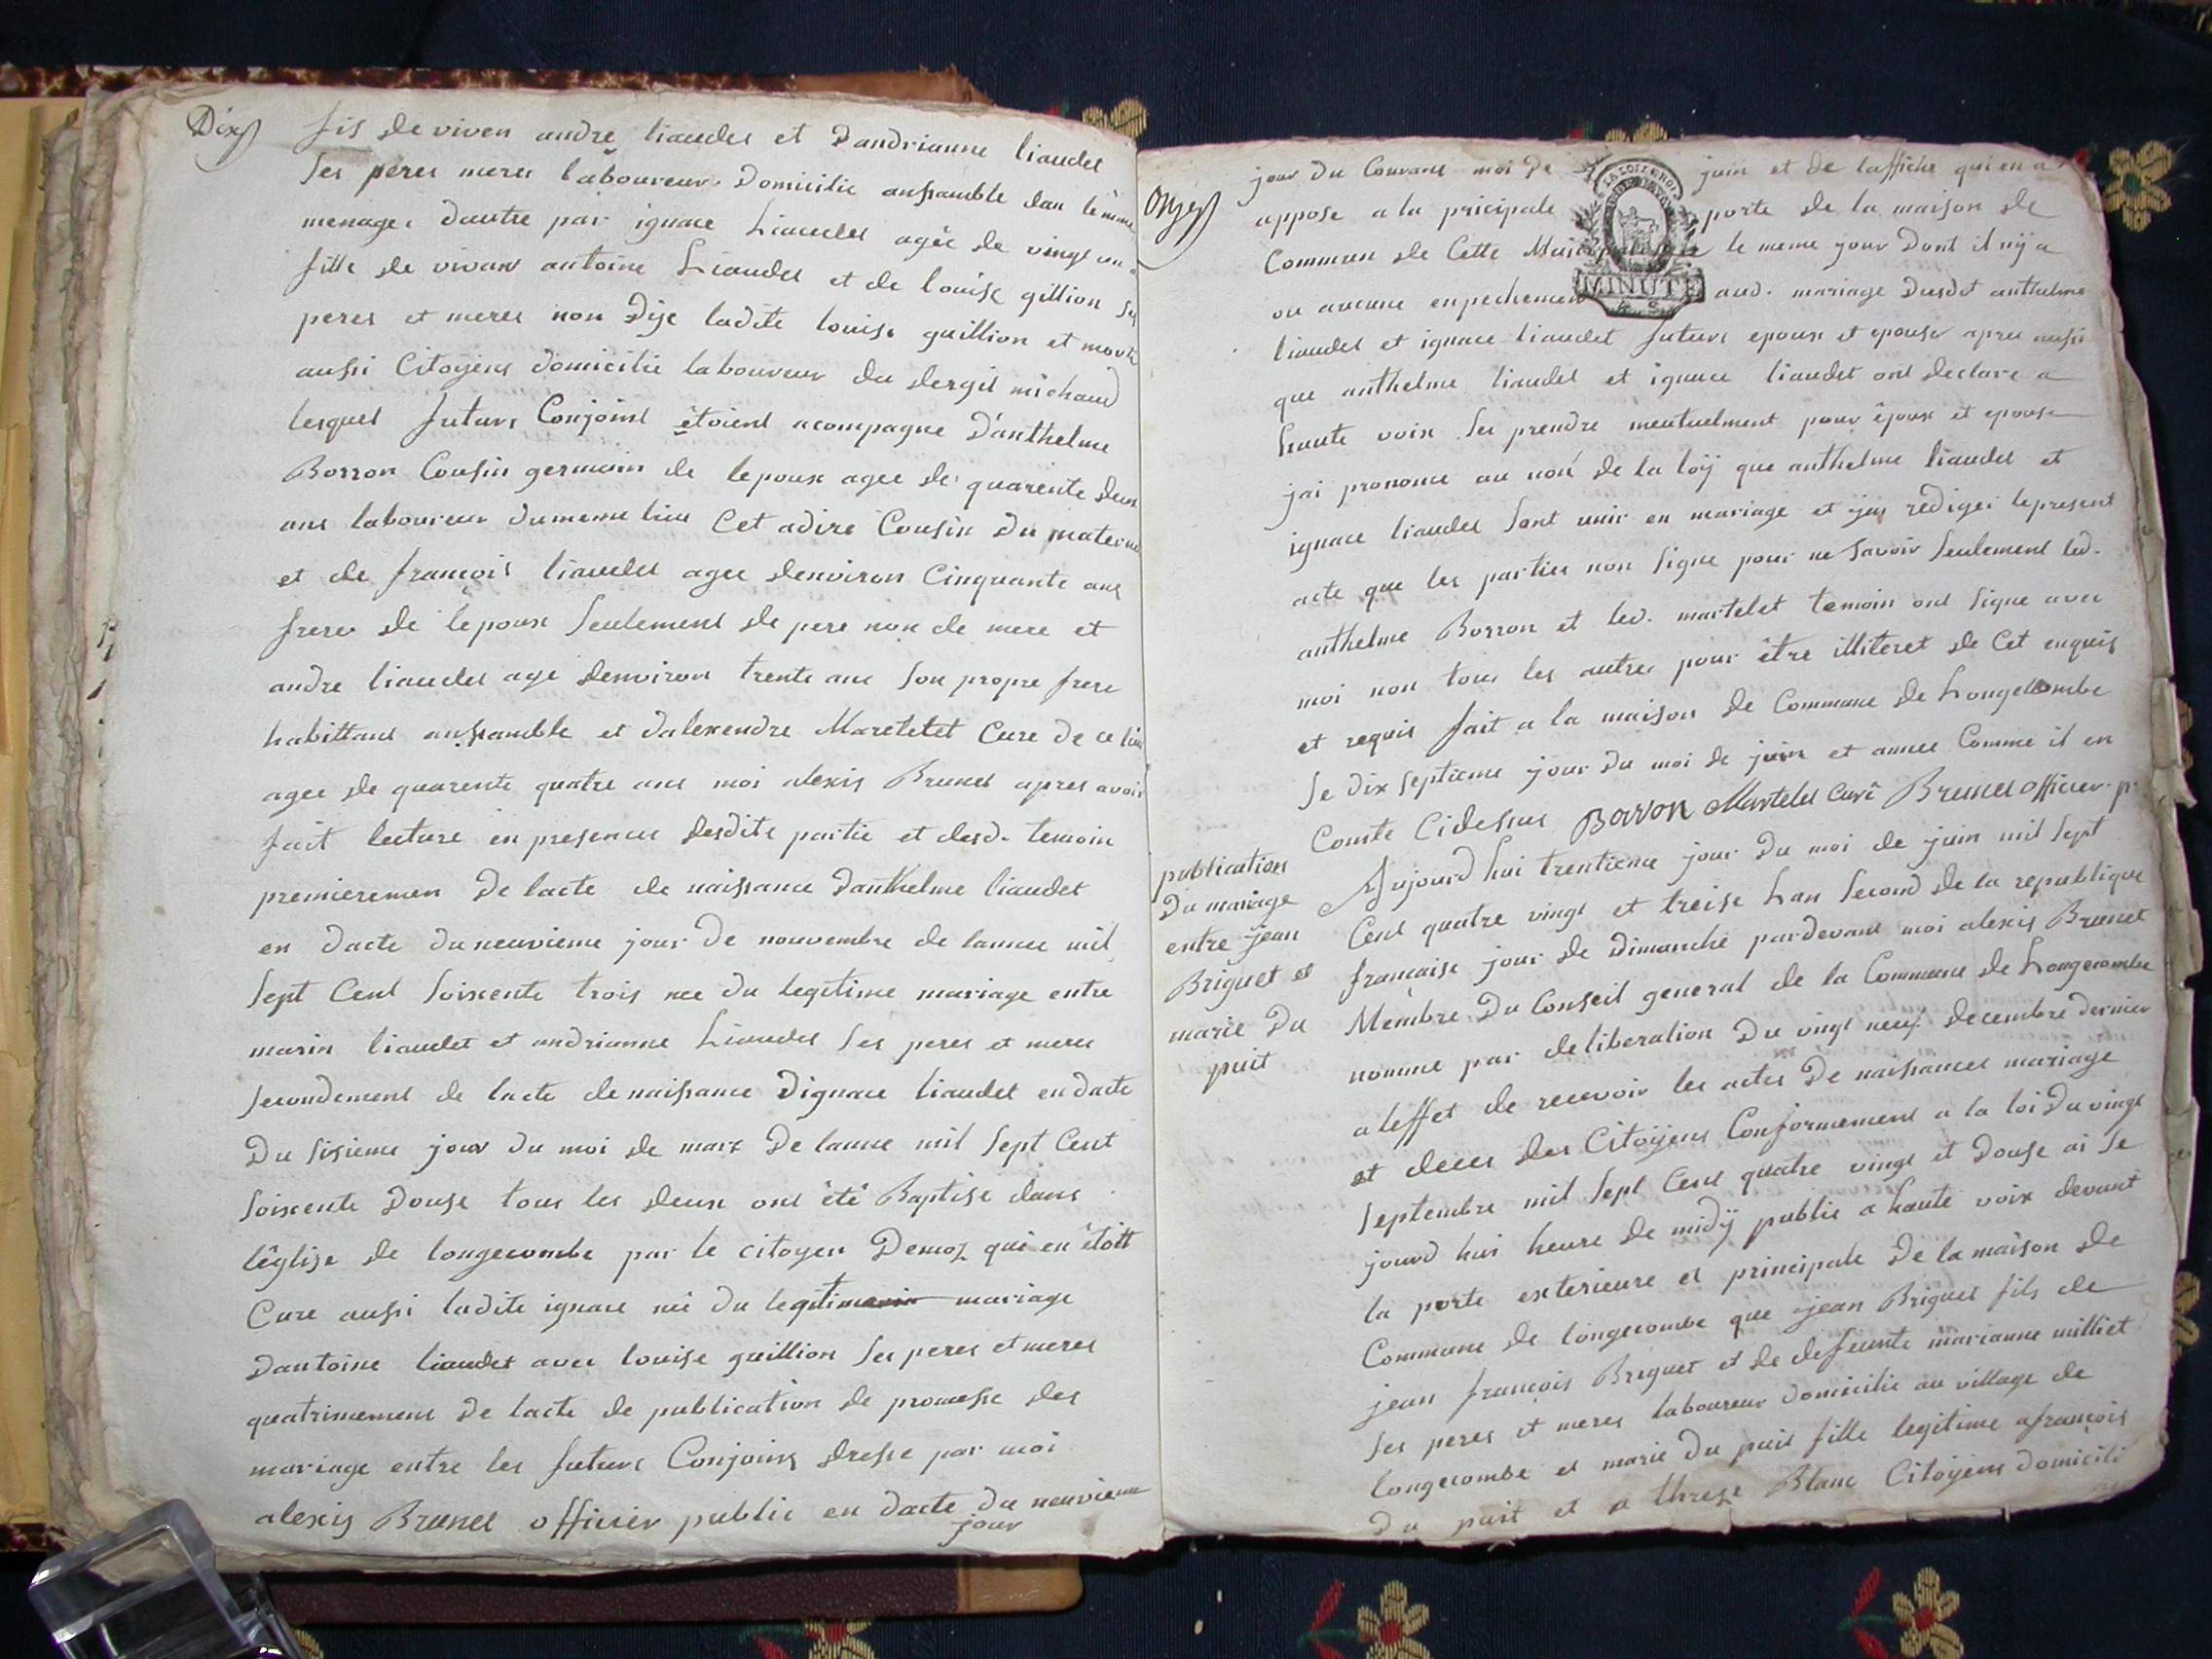 Dix
fis de viven andre liaudet et Dandrianne liaudet
Ses peres meres laboureur Domicilie anssamble dan le meme
menage. dautre par ignace Liaudet agée de vingt un
fille de vivan antoine Liaudet et de louise gillion Ses
peres et meres non Dije ladite louise guillion et morte
aussi Citoyens domicilie laboureur du dergit michaud
lesquel futurs Conjoint étoient acompagne D'anthelme
Borron Cousin germain de lepoux agee de quarente deux
ans laboureur du meme lieu Cet adire Cousin Du maternel
et de francois liaudet agee denviron Cinquante ans
frere de lepoux Seulement de pere non de mere et
andre liaudet age denviron trente ans son propre frere
habittans anssamble et dalexendre Maretelet Cure de ce lieu
agee de quarente quatre ans moi alexis Brunet apres avoir
fait lecture en presence desdits partie et desd. temoin
premieremen De lacte de naissance danthelme liaudet
en dacte du neuvieme jour De nouvembre de lannee mil
Sept Cent Soixente trois nee du legitime mariage entre
marin liaudet et andrianne Liaudet Ses peres et meres
Secondement de lacte de naissance Dignace liaudet en dacte
Du sisieme jour du moi de marz De lanne mil Sept Cent
Soixente Douse tous les deux ont été Baptise dans
léglise de longecombe par le citoyen Demoz qui en étoit
Cure aussi ladite ignace né du legitime mariage
Dantoine liaudet avec louise guillion Ses peres et meres
quatrimement De lacte de publication de promesse des
mariage entre les futurs Conjoins dresse par moi
alexis Brunet officier public en dacte du neuvieme
jour
Onze
jour du Courant moi De juin et de laffiche qui en a
appose a la pricipale porte de la maison de
Commun de Cette le meme jour Dont il nÿ a
ou aucune enpechement aud. mariage Dusdt anthelme
liaudet et ignace liaudet futurs epoux et epouse apres aussi
que anthelme liaudet et ignace liaudet ont declare a
haute voix Ses prendre meutuelment pour époux et epouse
jai prononce au non de la loÿ que anthelme liaudet et
ignace liaudet Sont unir en mariage et jay rediger le present
acte que les parties non Signe pour ne Savoir Seulement led.
anthelme Borron et led. martelet temoin ont Signe avec
moi non tous les autres pour être illiteret de Cet enquis
et requis fait a la maison de Commune de Longecombe
Se dix septieme jour du moi de juin et annee Comme il en
Comte Cidessus Borron Martelet Curé Brunet officier p.
publication
Du mariage
entre jean
Briguet et
marie Du
puit
Aujourd hui trentieme jour Du moi de juin mil Sept
Cent quatre vingt et treise Lan Second de la republique
francaise jour de Dimanche pardevant moi alexis Brunet
Membre Du Conseil general de la Commune de Longecombe
nomme par deliberation Du vingt neuf decembre dernier
a leffet de recevoir les actes De naissances mariage
et deces des Citoyens Conformement a la loi Du vingt
Septembre mil Sept Cent quatre vingt et Douse ai Se
jourd hui heure de midÿ public a haute voix devant
la porte exterieure et principale De la maison de
Commune de longecombe que jean Briguet fils de
jean francois Briguet et de defeunte marianne milliet
Ses peres et meres laboureur domicilie au village de
longecombe et marie Du puit fille legitime a francois
Du puit et a threse Blanc Citoyens domicili
LA LOI LE ROI
MINUTE
4 S